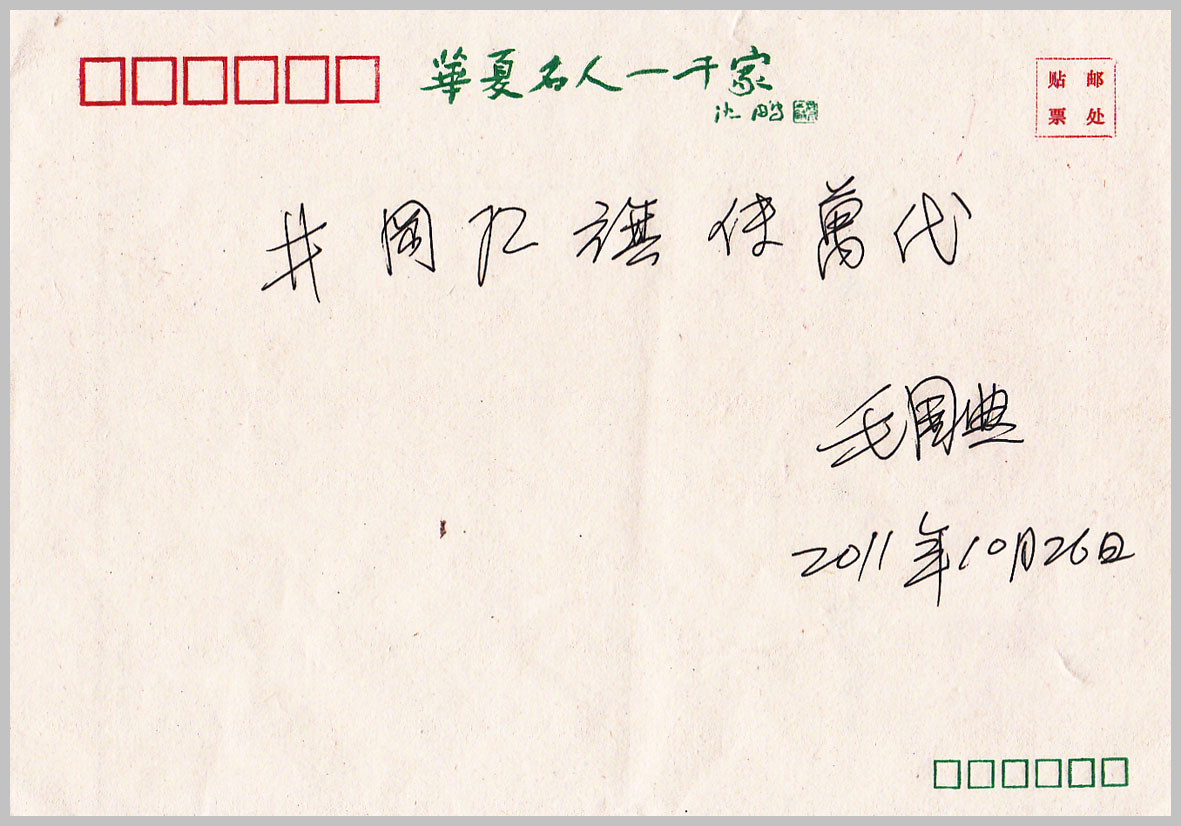 華夏名人一千家
沈鹏
贴邮
票处
井岡红旗传萬代
毛国典
2011年10月26日